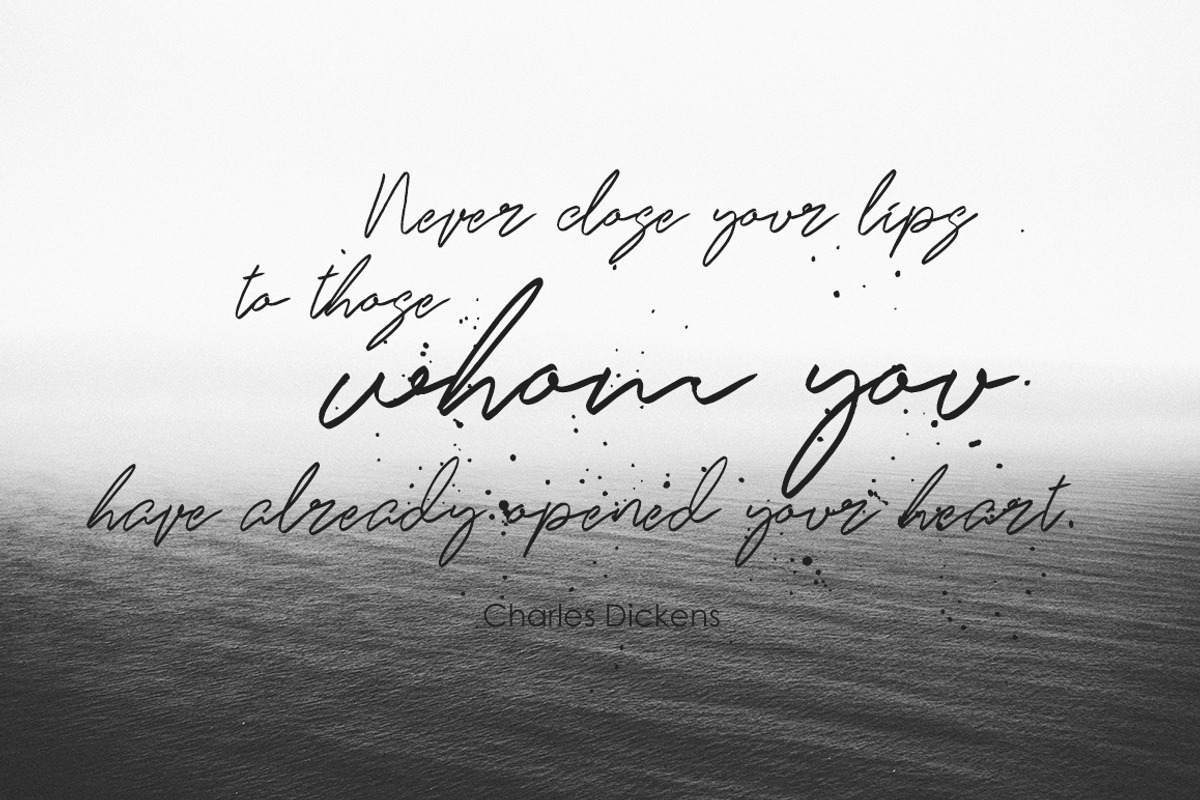 Never close your lips
to those
whom you
have already opened your heart.
Charles Dickens